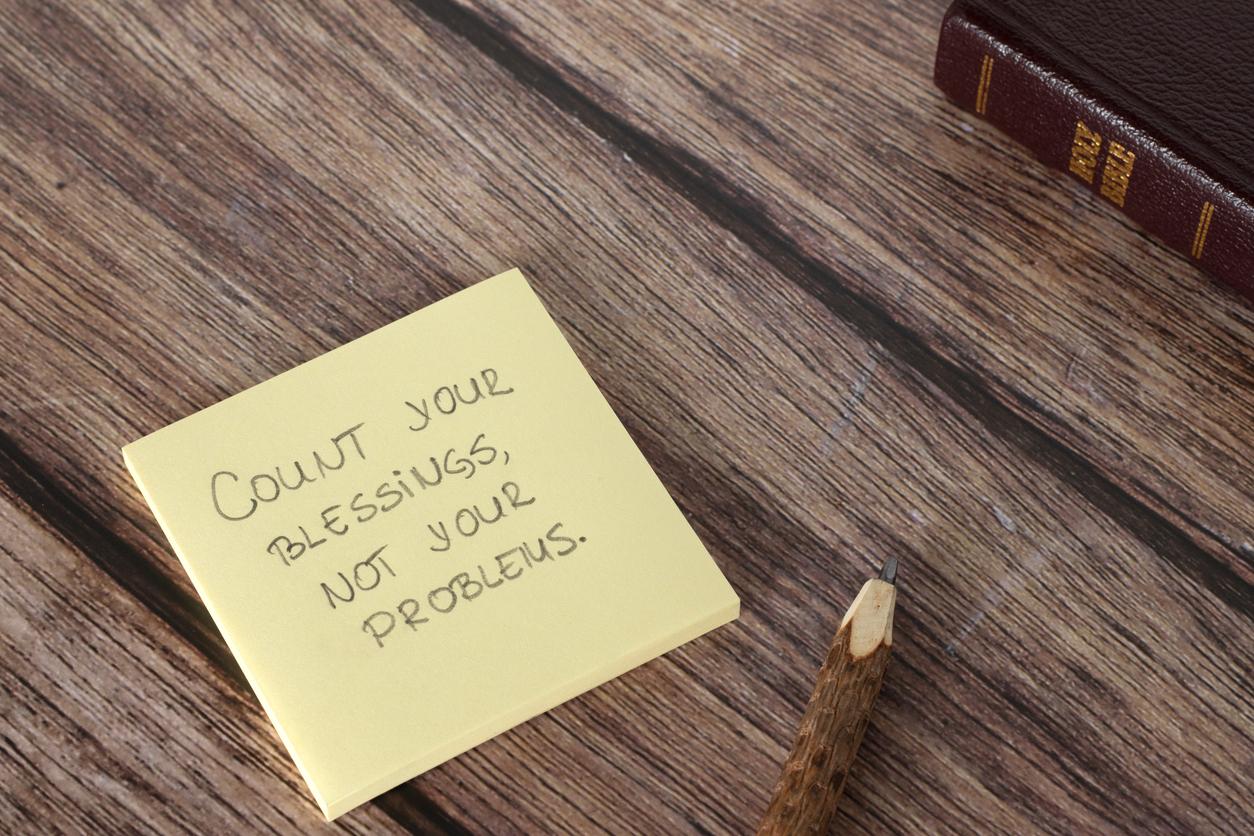 COUNT YOUR
BLESSiNGS,
NOT YOUR
PROBLEMS.
HOLY
BIBLE